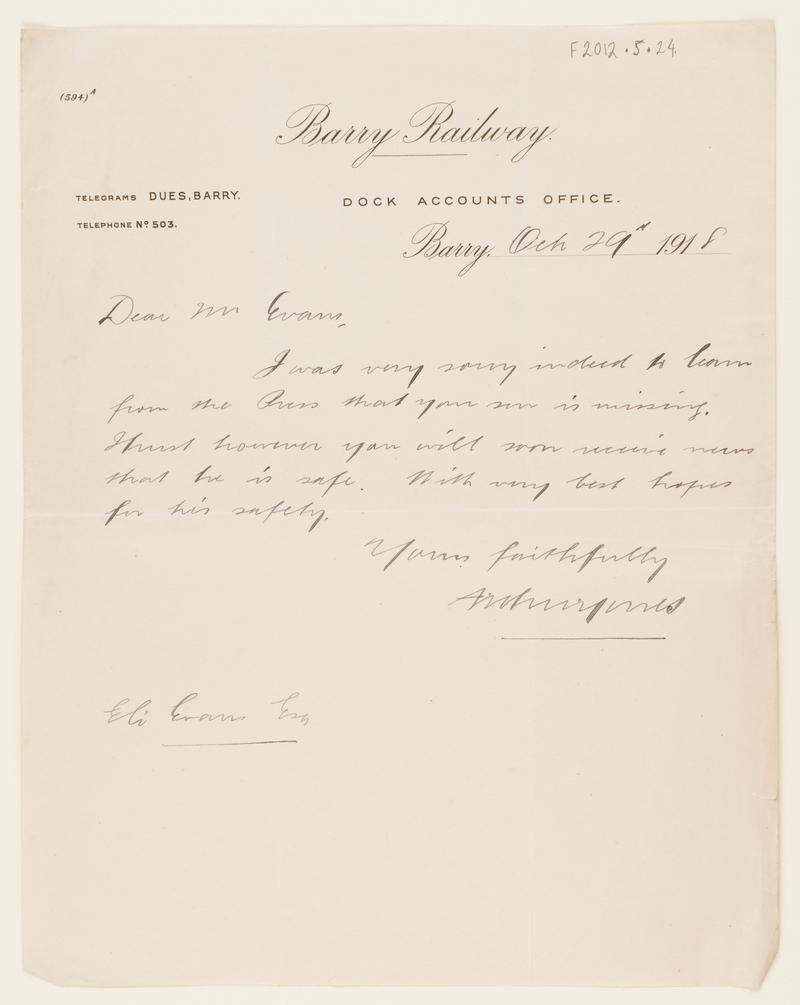 F2012.5.24.
(594)A
Barry Railway.
TELEGRAMS DUES, BARRY.
DOCK ACCOUNTS OFFICE.
TELEPHONE No 503.
Barry. Oct 29th 1918
Dear Mr Evans,
I was very sorry indeed to learn
from the Press that your son is missing.
I trust however you will soon receive news
that he is safe. With very best hopes
for his safety.
Yours faithfully
Arthur Jones
Eli Evans Esq